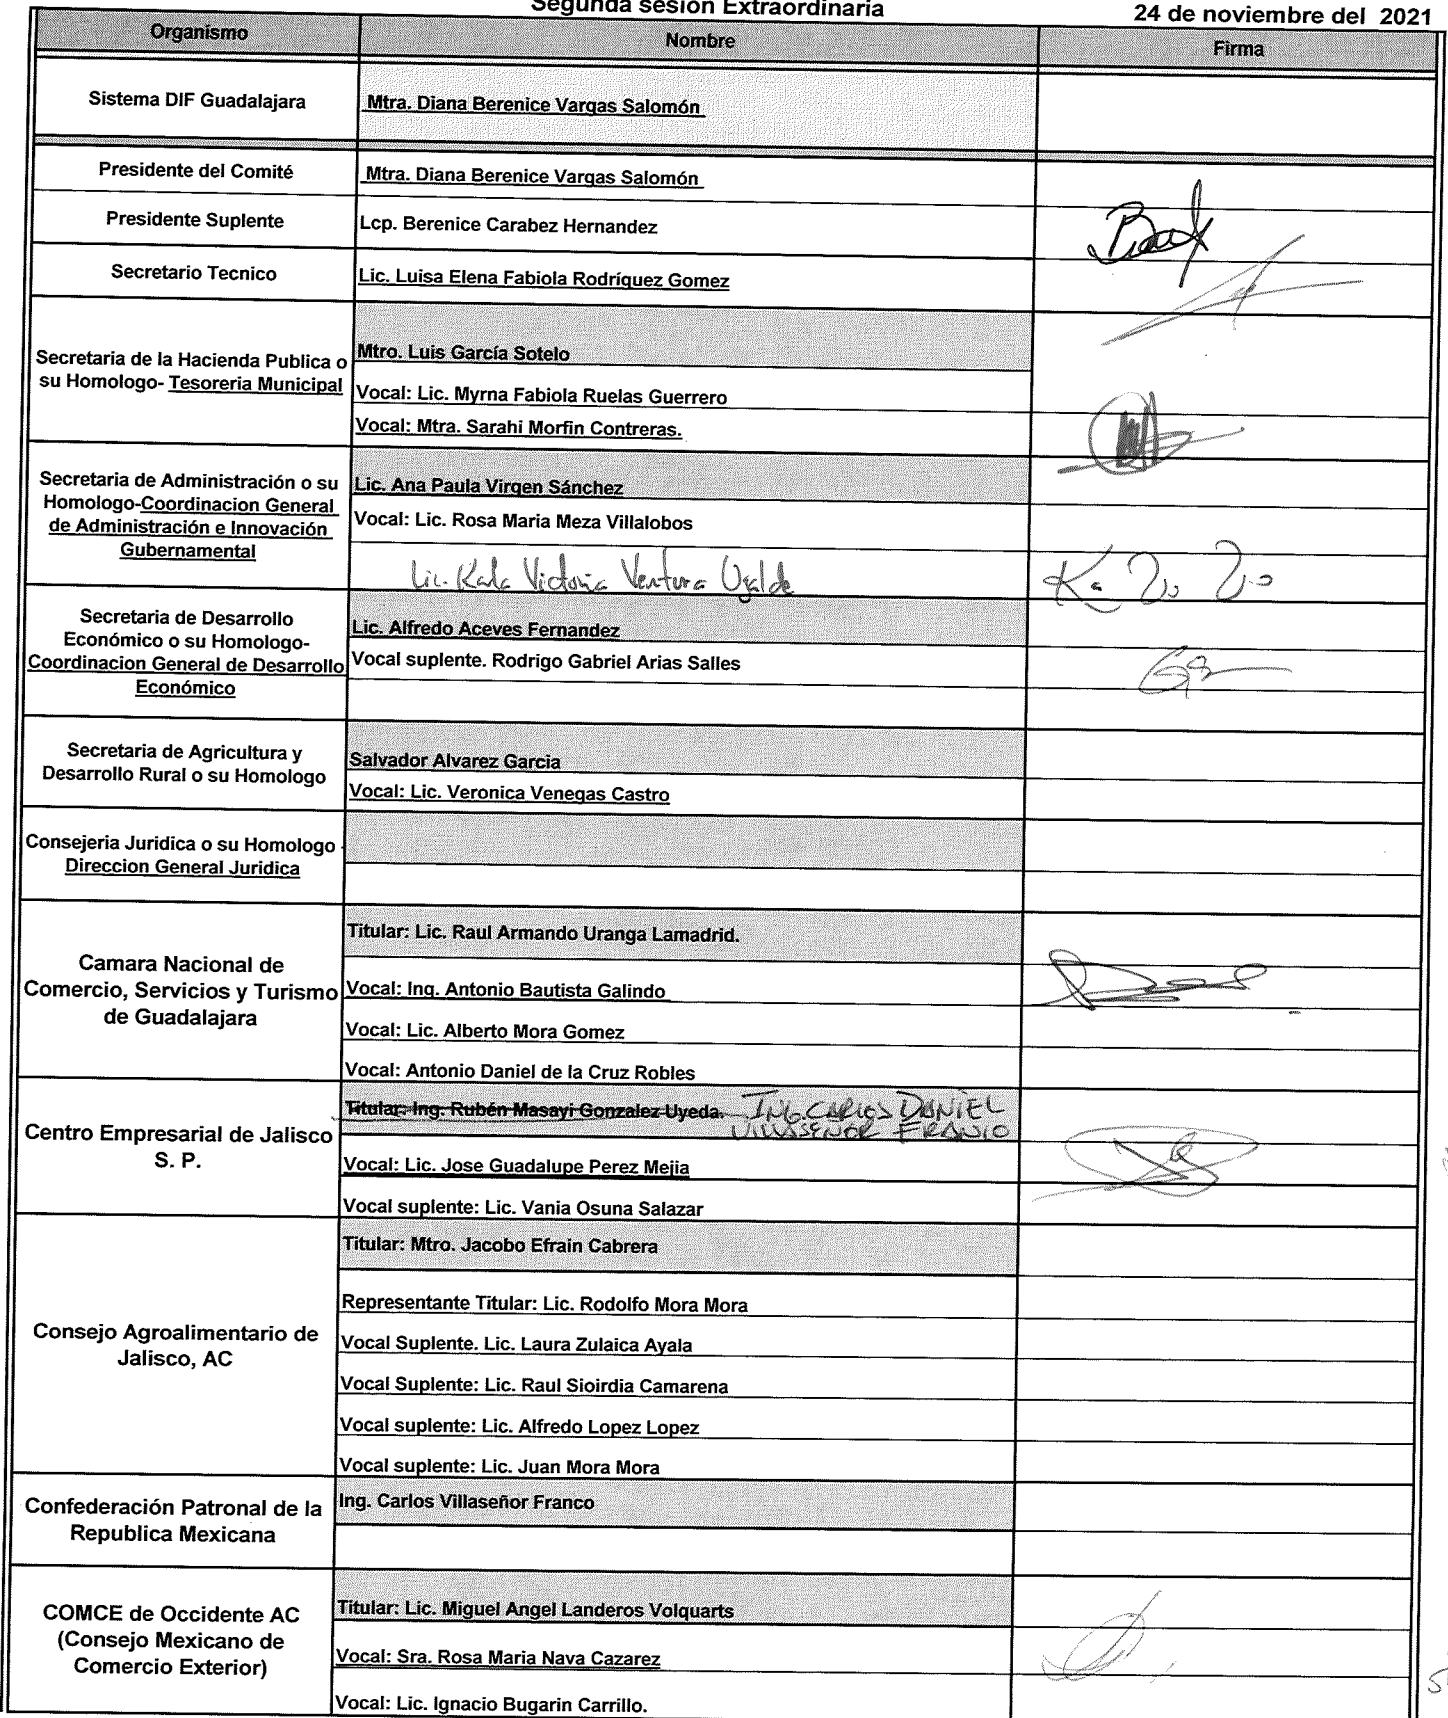 Segunda sesion Extraordinaria
24 de noviembre del 2021
Organismo
Nombre
Firma
Sistema DIF Guadalajara
Mtra. Diana Berenice Vargas Salomón
Presidente del Comité
Mtra. Diana Berenice Vargas Salomón
Presidente Suplente
Lcp. Berenice Carabez Hernandez
Secretario Tecnico
Lic. Luisa Elena Fabiola Rodríguez Gomez
Secretaria de la Hacienda Publica o
su Homologo- Tesoreria Municipal
Mtro. Luis García Sotelo
Vocal: Lic. Myrna Fabiola Ruelas Guerrero
Vocal: Mtra. Sarahi Morfin Contreras.
Secretaria de Administración o su
Homologo-Coordinacion General
de Administración e Innovación
Gubernamental
Lic. Ana Paula Virgen Sánchez
Vocal: Lic. Rosa Maria Meza Villalobos
Lic. Karla Victoria Ventura Ugalde
Secretaria de Desarrollo
Económico o su Homologo-
Coordinacion General de Desarrollo
Económico
Lic. Alfredo Aceves Fernandez
Vocal suplente. Rodrigo Gabriel Arias Salles
Secretaria de Agricultura y
Desarrollo Rural o su Homologo
Salvador Alvarez Garcia
Vocal: Lic. Veronica Venegas Castro
Consejeria Juridica o su Homologo -
Direccion General Juridica
Camara Nacional de
Comercio, Servicios y Turismo
de Guadalajara
Titular: Lic. Raul Armando Uranga Lamadrid.
Vocal: Ing. Antonio Bautista Galindo
Vocal: Lic. Alberto Mora Gomez
Vocal: Antonio Daniel de la Cruz Robles
Centro Empresarial de Jalisco
S. P.
Titular: Ing. Rubén Masayi Gonzalez Uyeda. ING. CARLOS DANIEL
VILLASEÑOR FRANCO
Vocal: Lic. Jose Guadalupe Perez Mejia
Vocal suplente: Lic. Vania Osuna Salazar
Consejo Agroalimentario de
Jalisco, AC
Titular: Mtro. Jacobo Efrain Cabrera
Representante Titular: Lic. Rodolfo Mora Mora
Vocal Suplente. Lic. Laura Zulaica Ayala
Vocal Suplente: Lic. Raul Sioirdia Camarena
Vocal suplente: Lic. Alfredo Lopez Lopez
Vocal suplente: Lic. Juan Mora Mora
Confederación Patronal de la
Republica Mexicana
Ing. Carlos Villaseñor Franco
COMCE de Occidente AC
(Consejo Mexicano de
Comercio Exterior)
Titular: Lic. Miguel Angel Landeros Volquarts
Vocal: Sra. Rosa Maria Nava Cazarez
Vocal: Lic. Ignacio Bugarin Carrillo.